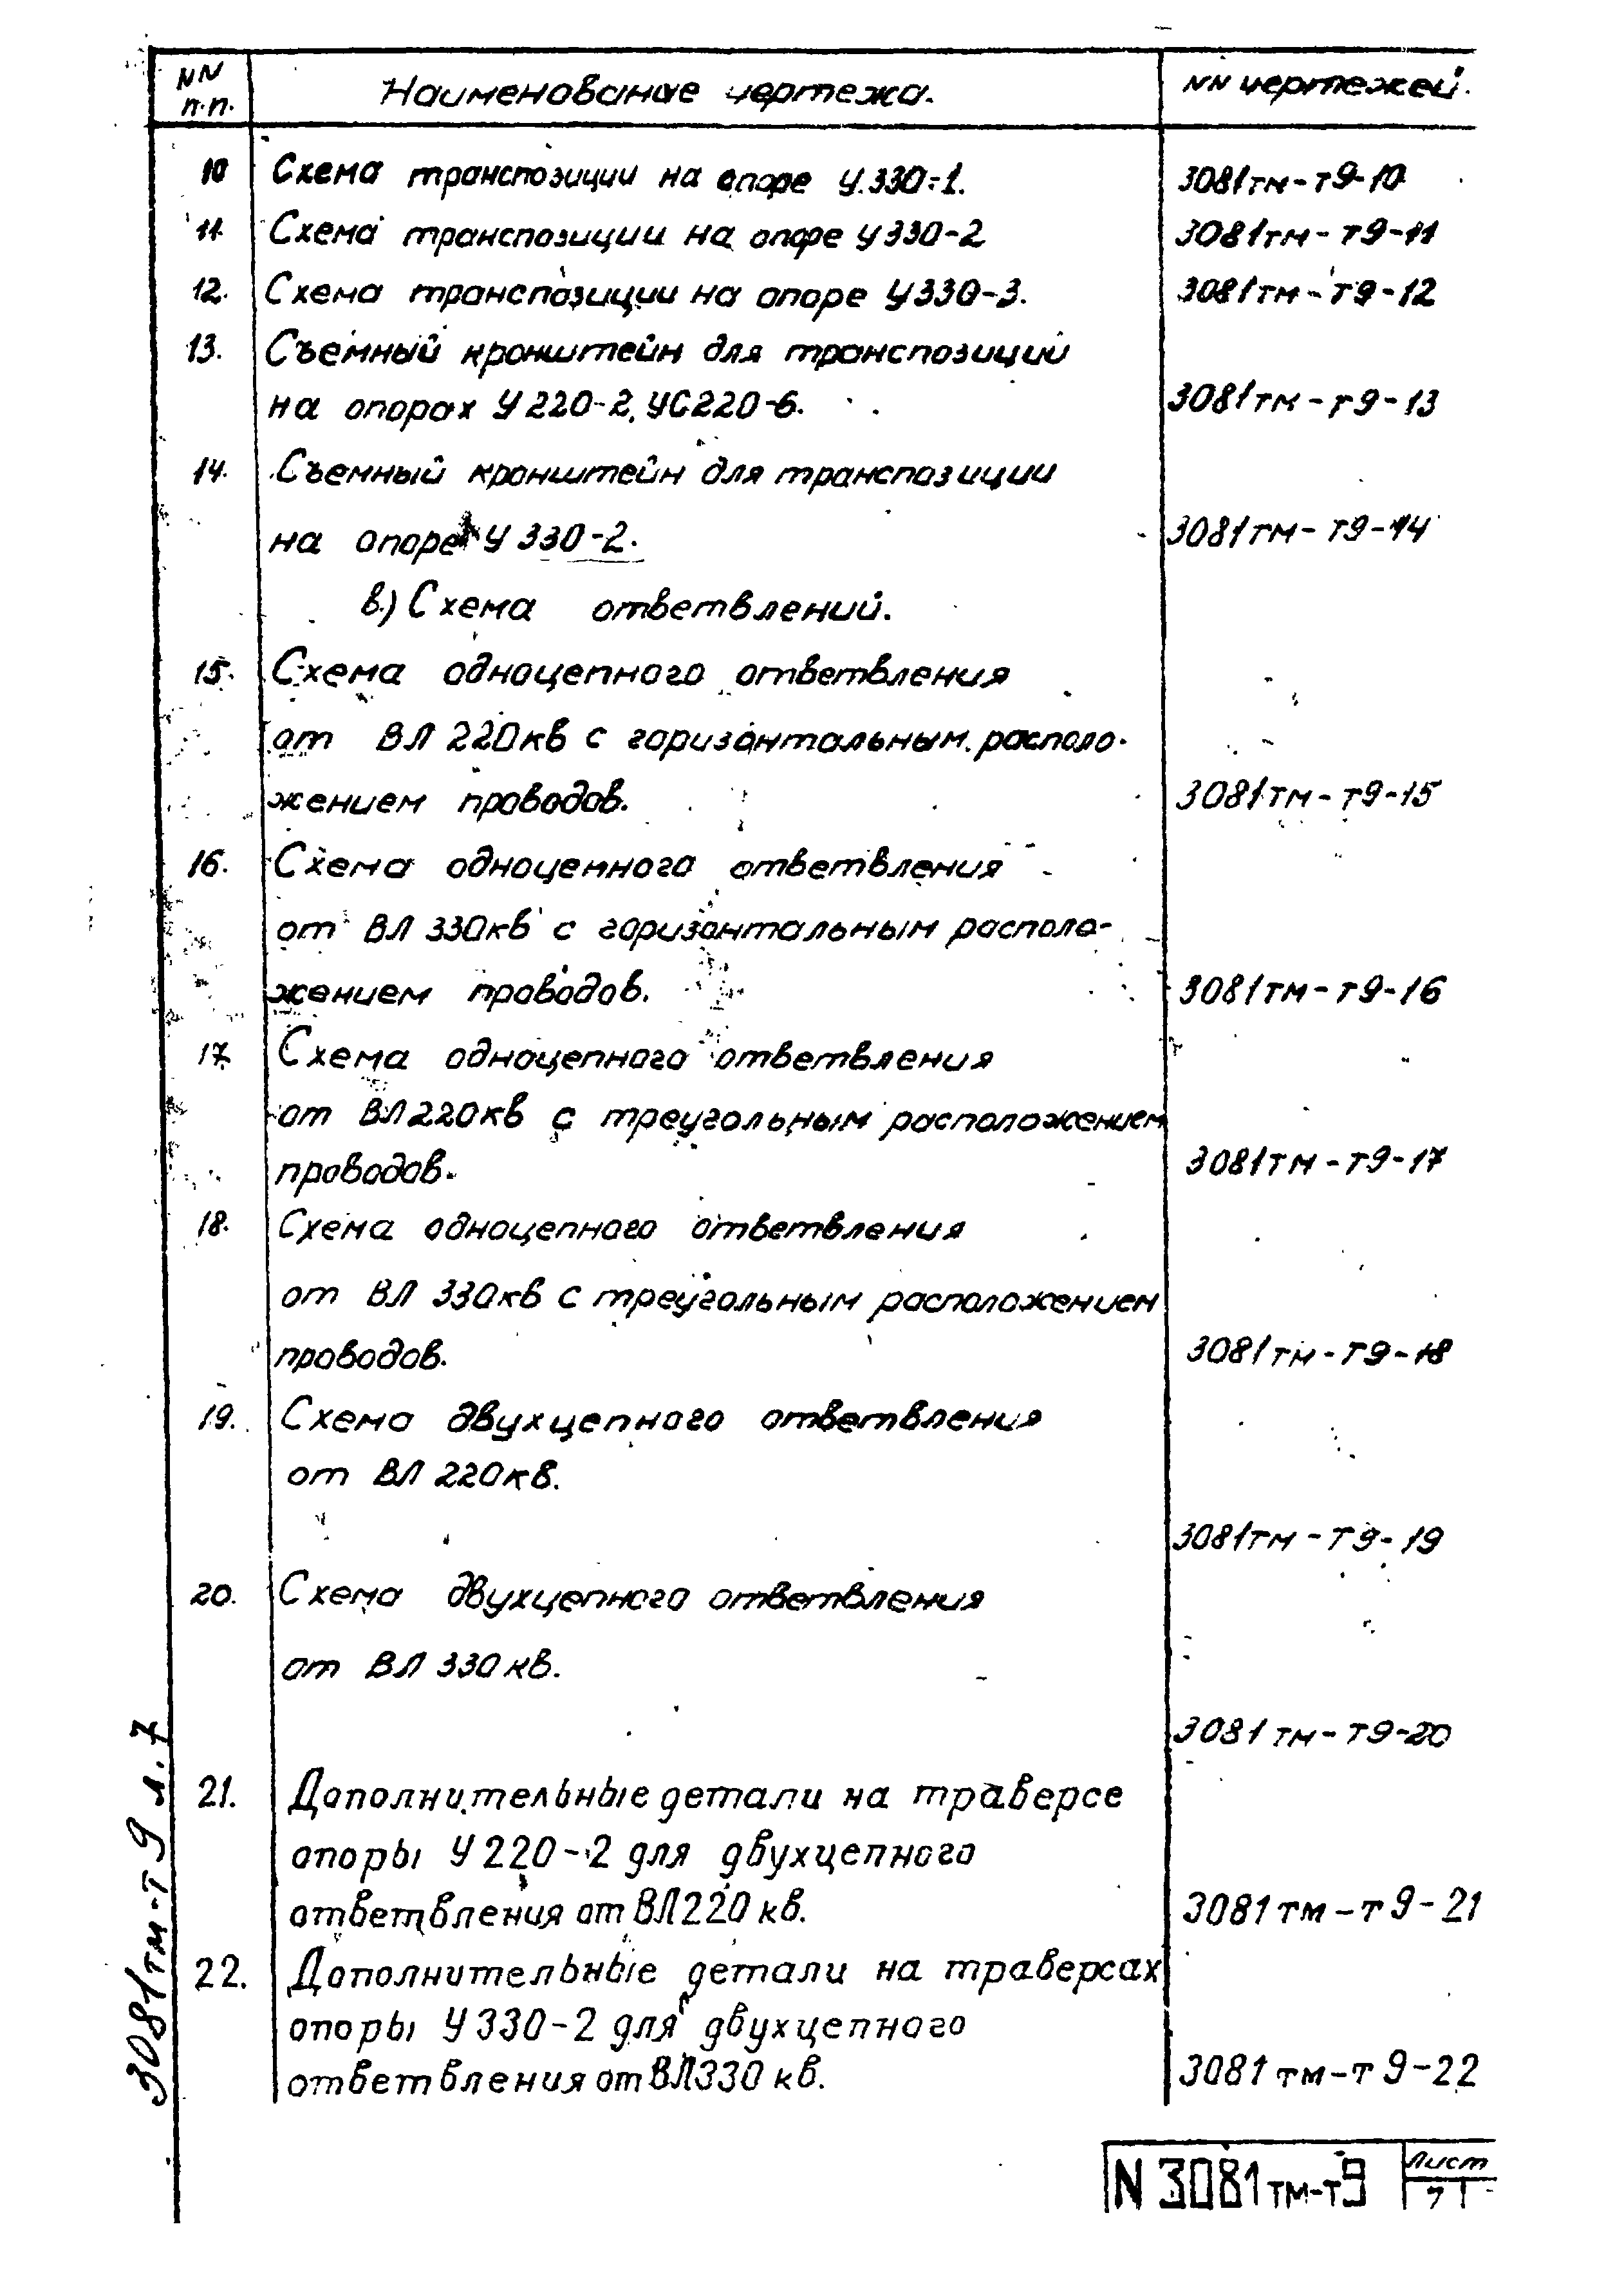 NN п.п. Наименование чертежа. NN чертежей.
10 Схема транспозиции на опоре У.330-1. 3081тм-т9-10
11. Схема транспозиции на опоре У330-2 3081тм-т9-11
12. Схема транспозиции на опоре У330-3. 3081тм-т9-12
13. Съемный кронштейн для транспозиции
на опорах У220-2, УС220-6. 3081тм-т9-13
14. Съемный кронштейн для транспозиции
на опоре У330-2. 3081тм-т9-14
в.) Схема ответвлений.
15. Схема одноцепного ответвления
от ВЛ 220кв с горизонтальным располо-
жением проводов. 3081тм-т9-15
16. Схема одноцепного ответвления
от ВЛ 330кв с горизонтальным располо-
жением проводов. 3081тм-т9-16
17. Схема одноцепного ответвления
от ВЛ220кв с треугольным расположением
проводов. 3081тм-т9-17
18. Схема одноцепного ответвления
от ВЛ 330кв с треугольным расположением
проводов. 3081тм-т9-18
19. Схема двухцепного ответвления
от ВЛ 220кв.
3081тм-т9-19
20. Схема двухцепного ответвления
от ВЛ 330кв.
3081тм-т9-20
21. Дополнительные детали на траверсе
опоры У220-2 для двухцепного
ответвления от ВЛ220 кв. 3081тм-т9-21
22. Дополнительные детали на траверсах
опоры У330-2 для двухцепного
ответвления от ВЛ330 кв. 3081тм-т9-22
3081тм-т9 л.7
N 3081тм-т9 Лист
7